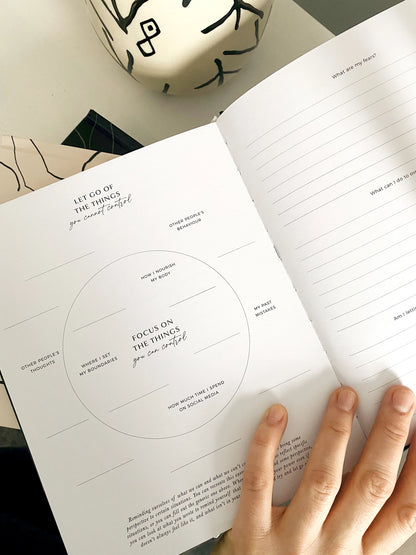 LET GO OF
THE THINGS
you cannot control
OTHER PEOPLE'S
BEHAVIOUR
HOW I NOURISH
MY BODY
MY PAST
MISTAKES
FOCUS ON
THE THINGS
you can control
OTHER PEOPLE'S
THOUGHTS
WHERE I SET
MY BOUNDARIES
HOW MUCH TIME I SPEND
ON SOCIAL MEDIA
Reminding ourselves of what we can and what we can't
perspective to certain situations. You can recreate this exer
situations, or you can fill out the generic one above. Whene
you can look at what you wrote to remind yourself that
doesn't always feel like it, and what isn't in your
bring some
reflect specific
some perspective,
your power even if
What are my fears?
What can I do to
Am I